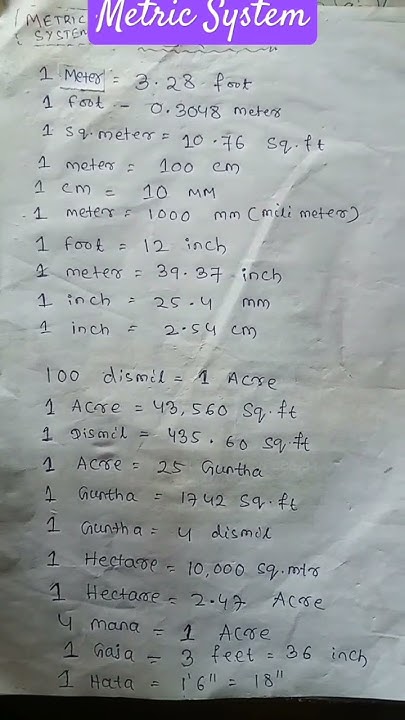 Metric System
METRIC
SYSTEM
1 Meter = 3.28 foot
1 foot - 0.3048 meter
1 sq.meter = 10.76 sq.ft
1 meter = 100 cm
1 cm = 10 MM
1 meter = 1000 mm (mili meter)
1 foot = 12 inch
1 meter = 39.37 inch
1 inch = 25.4 mm
1 inch = 2.54 cm
100 dismil = 1 Acre
1 Acre = 43,560 Sq.ft
1 Dismil = 435.60 sq.ft
1 Acre = 25 Guntha
1 Guntha = 1742 sq.ft
1 Guntha = 4 dismil
1 Hectare = 10,000 sq.mtr
1 Hectare = 2.47 Acre
4 mana = 1 Acre
1 Gaja = 3 feet = 36 inch
1 Hata = 1'6" = 18"